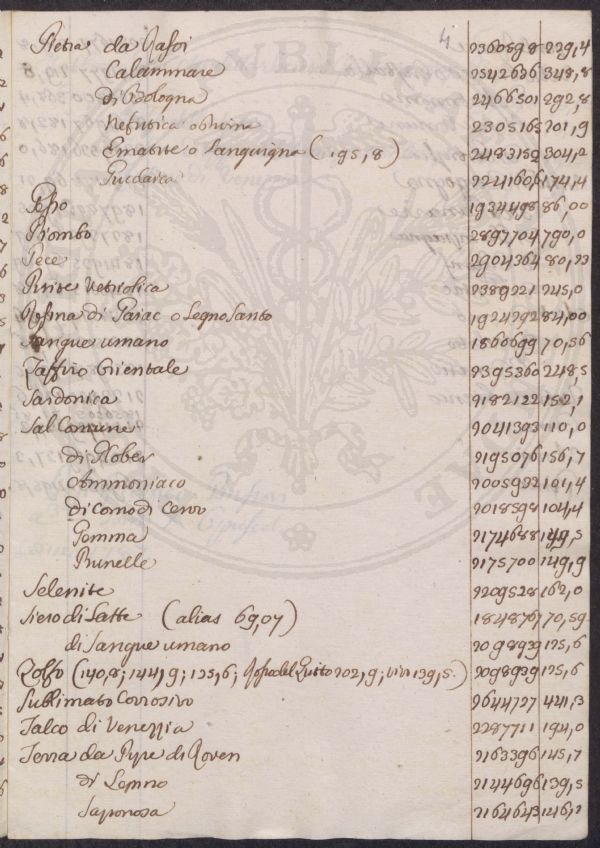 4
Pietra da Rasoi 2360598 229,4
Calaminare 2542636 348,8
di Bologna 2466501 292,8
Nefritica obtuina 2305165 201,9
Ematite o Sanguigna (195,8) 2483152 304,2
Puddarea 2241606 174,4
Pepo 1934498 86,00
Piombo 2897704 790,0
Pece 2904364 80,23
Pirite Vetriolica 2389221 245,0
Resina di Guiac o Legno Santo 1924292 84,00
Sangue umano 1860699 70,56
Zaffiro Orientale 2395360 248,5
Sardonica 2182122 152,1
Sal Comune 2041393 110,0
di Glober 2195076 156,7
Ammoniaco 2005932 101,4
di Corno di Cervo 2018598 104,4
Gemma 2174688 149,5
Prunelle 2175700 149,9
Selenite 2209528 162,0
Siero di Latte (alias 69,07) 1848767 70,59
di Sangue umano 2098939 125,6
Zolfo (140,8; 144,9; 125,6; Rosso del Quito 202,9; vivo 139,5.) 2098939 125,6
Sublimato Corrosivo 2644727 441,3
Talco di Venezzia 2287711 194,0
Terra da Pipe di Roven 2163396 145,7
di Lemno 2144696 139,5
Saponosa 2164643 146,1